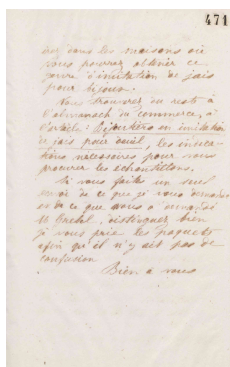 471
dez dans les maisons où
vous pourrez obtenir ce
genre d'imitation de jais
pour bijoux.
Vous trouverez du reste à
l'almanach du commerce, à
l'article Bijoutiers en imitation
de jais pour deuil, les indica-
tions nécessaires pour vous
procurer les échantillons.
Si vous faites un seul
envoi de ce que je vous demande
et de ce que vous a demandé
M. , distinguez bien
je vous prie les paquets
afin qu'il n'y ait pas de
confusion
Bien à vous